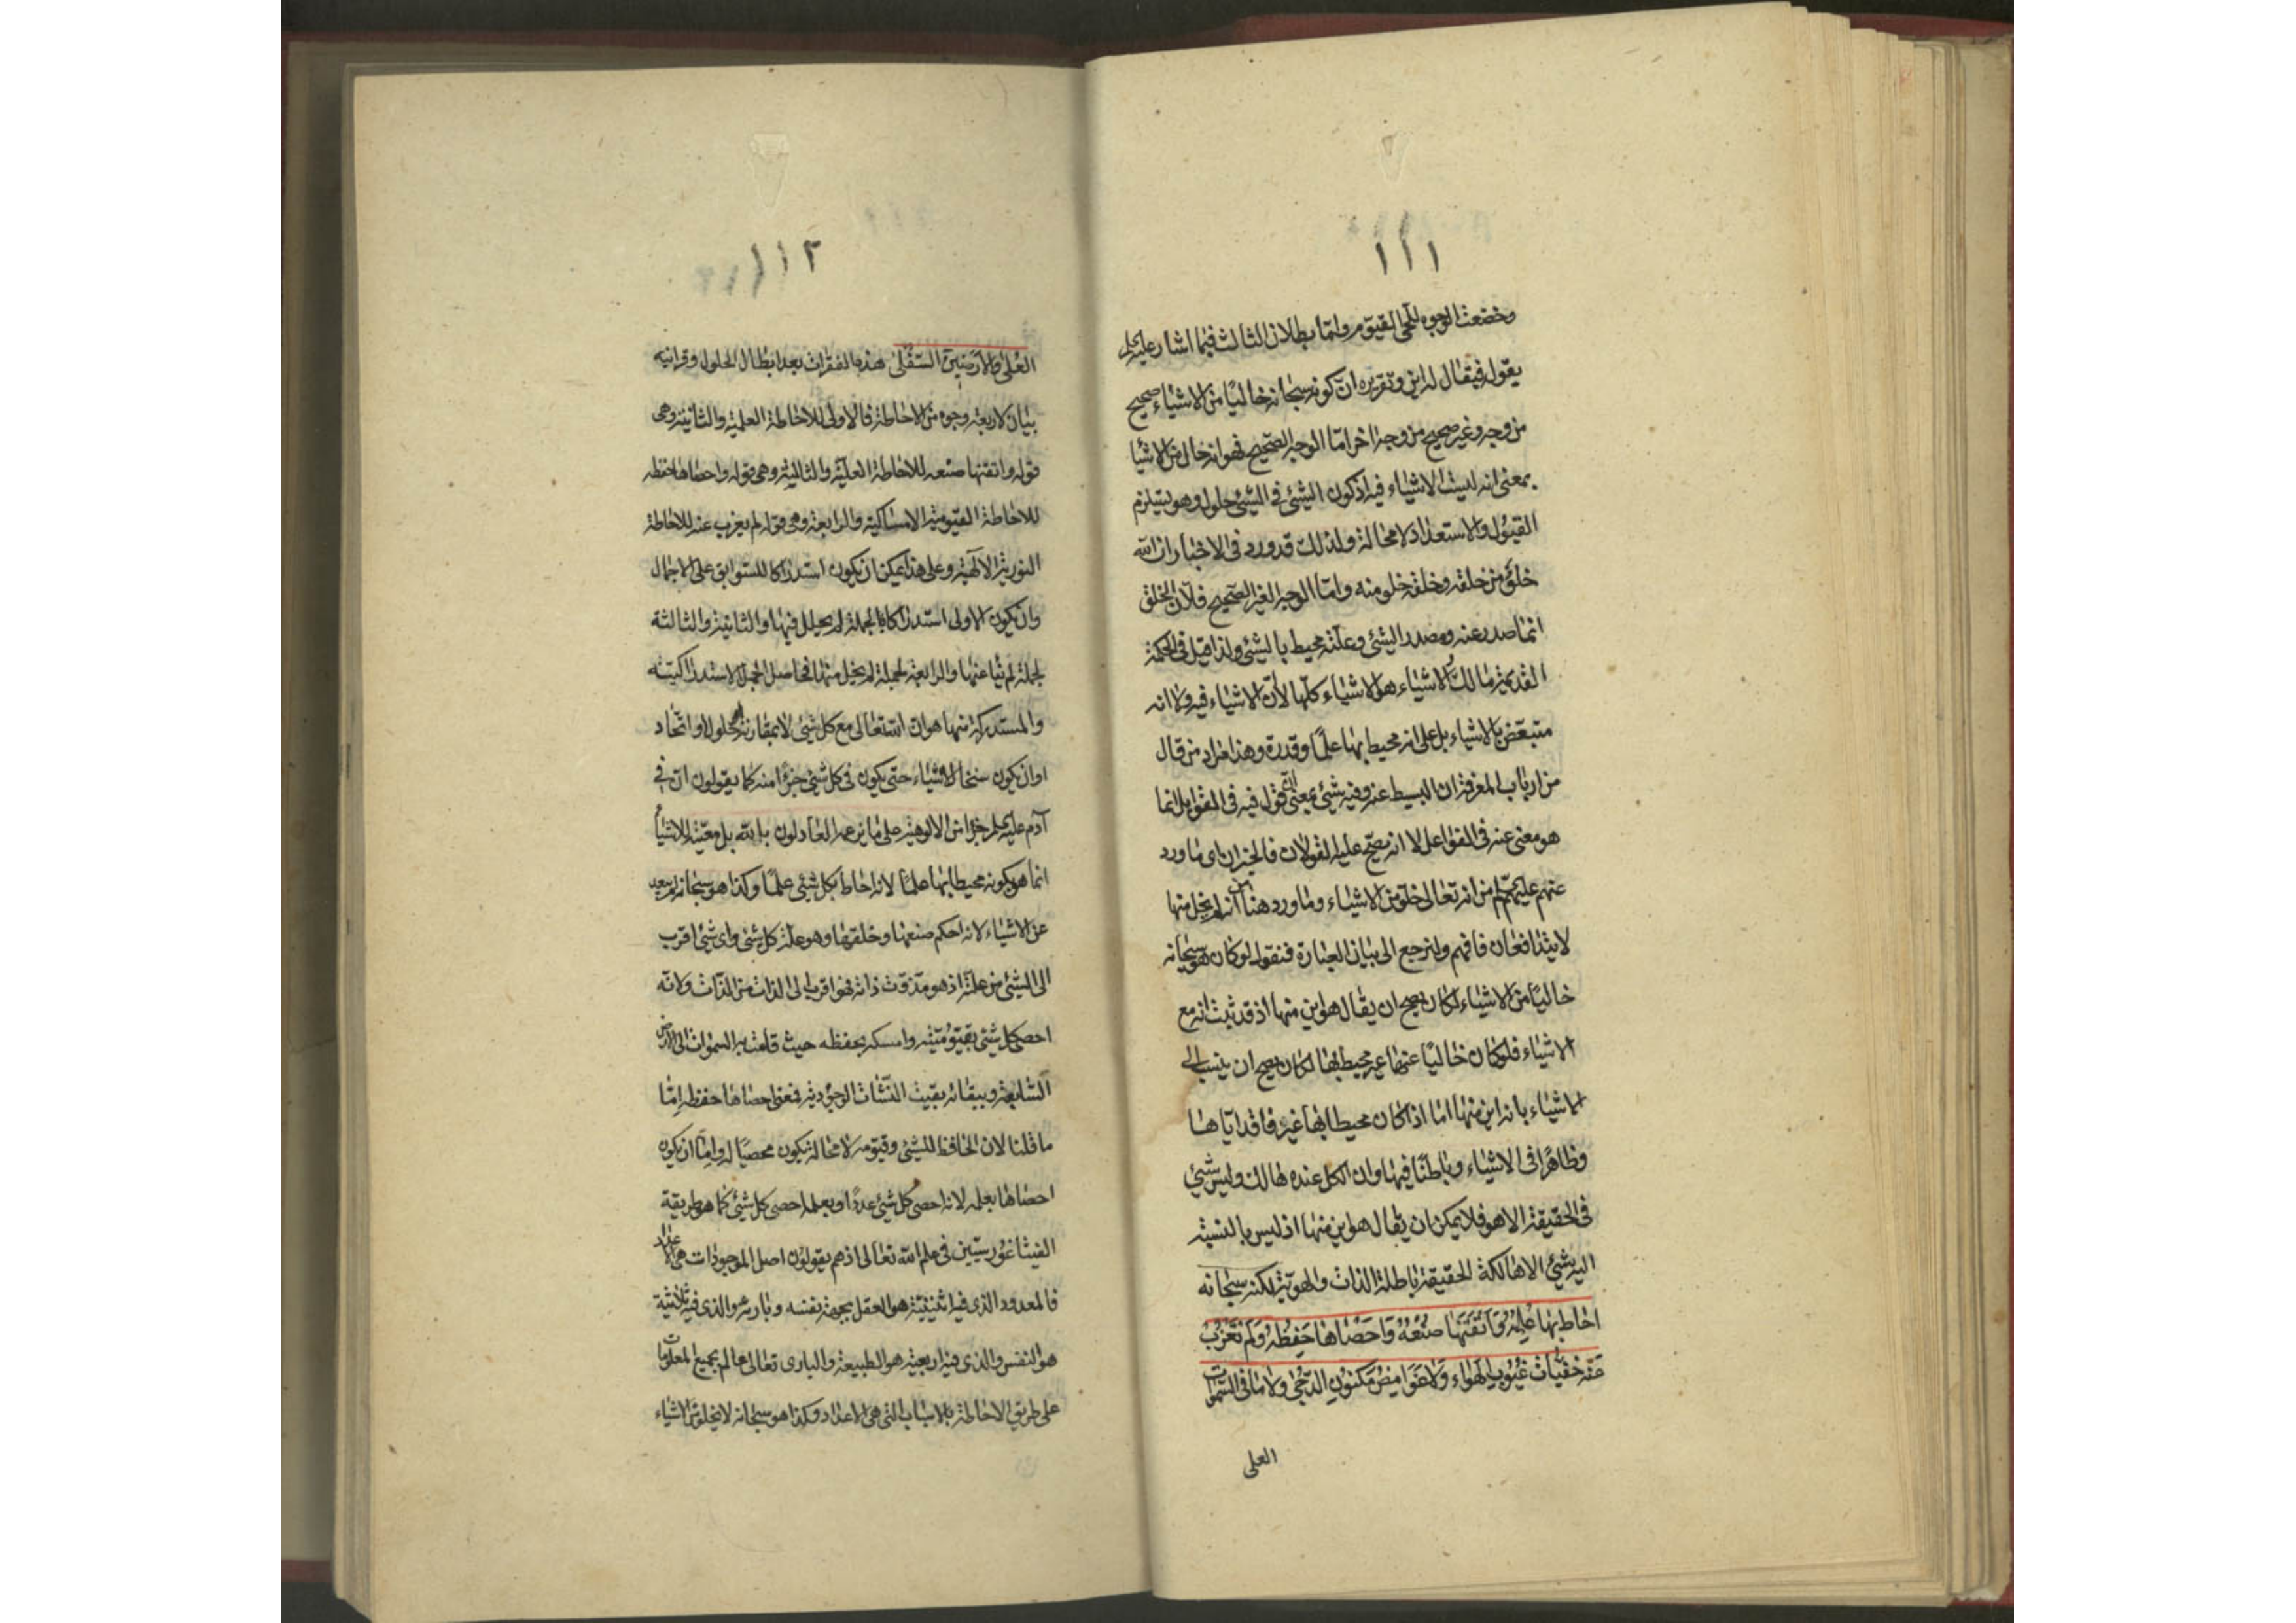 ١١١
وخضعت الوجوه للحي القيوم واما بطلان الثالث فيما اشار عليه السلم
يقوله فيقال له اين وتقريره ان كونه سبحانه خاليًا من الاشياء صحيح
من وجه وغير صحيح من وجه اخر اما الوجه الصحيح فهو انه خال من الاشيا
بمعنى انه ليست الاشياء فيه اذ كون الشئ في الشئ حلول وهو يستلزم
القبول والاستعداد لا محالة ولذلك قد ورد في الاخبار ان الله
خلوٌ من خلقه وخلقه خلو منه واما الوجه الغير الصحيح فلان الخلق
انما صدر عنه ومصدر الشئ وعلته محيط بالشئ ولذا قيل في الحكمة
القديمة مالك الاشياء هو الاشياء كلها لا ان الاشياء فيه ولا انه
متبعّض بالاشياء بل على انه محيط بها علمًا وقدرة وهذا مراد من قال
من ارباب المعرفة ان البسيط عنه وفيه شئ بمعنى ان قول فيه في القوابل انما
هو معنى عنه في الفواعل لا انه يصحّ عليه القولان فالخبران اي ما ورد
عنهم عليهم السلم من انه تعالى خلو من الاشياء وما ورد هنا من انه لم يخل منها
لا يتدافعان فافهم ولنرجع الى بيان العبارة فنقول لو كان هو سبحانه
خاليًا من الاشياء لكان يصح ان يقال هو اين منها اذ قد ثبت انه مع
الاشياء فلو كان خاليًا عنها غير محيط بها لكان يصح ان ينسب الى
الاشياء بانه اين منها اما اذا كان محيطا بها غير فاقد اياها
وظاهرًا في الاشياء وباطنًا فيها وان الكل عنده هالك وليس شئ
في الحقيقة الا هو فلا يمكن ان يقال هو اين منها اذ ليس بالنسبة
اليه شئ الا هالكة الحقيقة باطلة الذات والهوية لكنه سبحانه
احاط بها عِلمُهُ وَاَتْقَنَها صُنْعُهُ وَاَحْصَاها حِفظُهُ وَلَم تَعْزُب
عَنه خفيّات غيُوب الهَواء وَلا غوَامِض مكنون الدّجٰى ولا ما فى السّموات
العلى
١١٢
العُلى والارَضينَ السّفْلى هذه الفقرات بعد ابطال الحلول وقرانيه
بيان لاربعة وجوه من الاحاطة فالاولى للاحاطة العلمية والثانية وهى
قوله واتقنها صنعه للاحاطة العلّية والثالثة وهى قوله واحصاها حفظه
للاحاطة القيومية الامساكية والرابعة وهى قوله لم يعزب عنه للاحاطة
النورية الالهية وعلى هذا يمكن ان يكون استدراكا للسوابق على الاجمال
وان يكون الاولى استدراكا بالجملة لم يحلل فيها والثانية والثالثة
لجملة لم ينا عنها والرابعة لجملة لم يخل منها فحاصل الجمل الاستدراكيّة
والمستدركة منها هو ان الله تعالى مع كل شئ لا بمقارنة حلول او اتحاد
او ان يكون سنخا لاشياء حتى يكون في كل شئ جزءًا منه كما يقولون ان في
آدم عليه السلم جزءا من الالوهية على ما يزعم العادلون بالله بل معيّته للاشياء
انما هو بكونه محيطا بها علمًا لانه احاط بكل شئ علمًا وكذا هو سبحانه لم يبعد
عن الاشياء لانه احكم صنعها وخلقها وهو علة كل شئ واى شئ اقرب
الى الشئ من علته اذ هو مذوّت ذاته فهو اقرب الى الذات من الذات ولانه
احصى كل شئ بقيّوميّته وامسكه بحفظه حيث قامت به السموات الى الارض
السّابعة وببقائه بقيت النّشات الوجودية فمعنى احصاها حفظه إمّا
ما قلنا لان الحافظ للشئ وقيّومه لا محالة يكون محصيًا له وإمّا ان يكون
احصاها بعلمه لانه احصى كل شئ عددًا وبعلمه احصى كل شئ كما هو طريقة
الفيثاغورسيّين في علم الله تعالى اذ هم يقولون اصل الموجودات هى الاعداد
فالمعدود الذي فيه اثنينيّة هو العقل بجهة نفسه وبارئه والذي فيه ثلاثية
هو النفس والذي فيه اربعية هو الطبيعة والبارى تعالى عالم بجميع المعلومات
على طريق الاحاطة بالاسباب التي هي الاعداد وكذا هو سبحانه لا يخلو من الاشياء